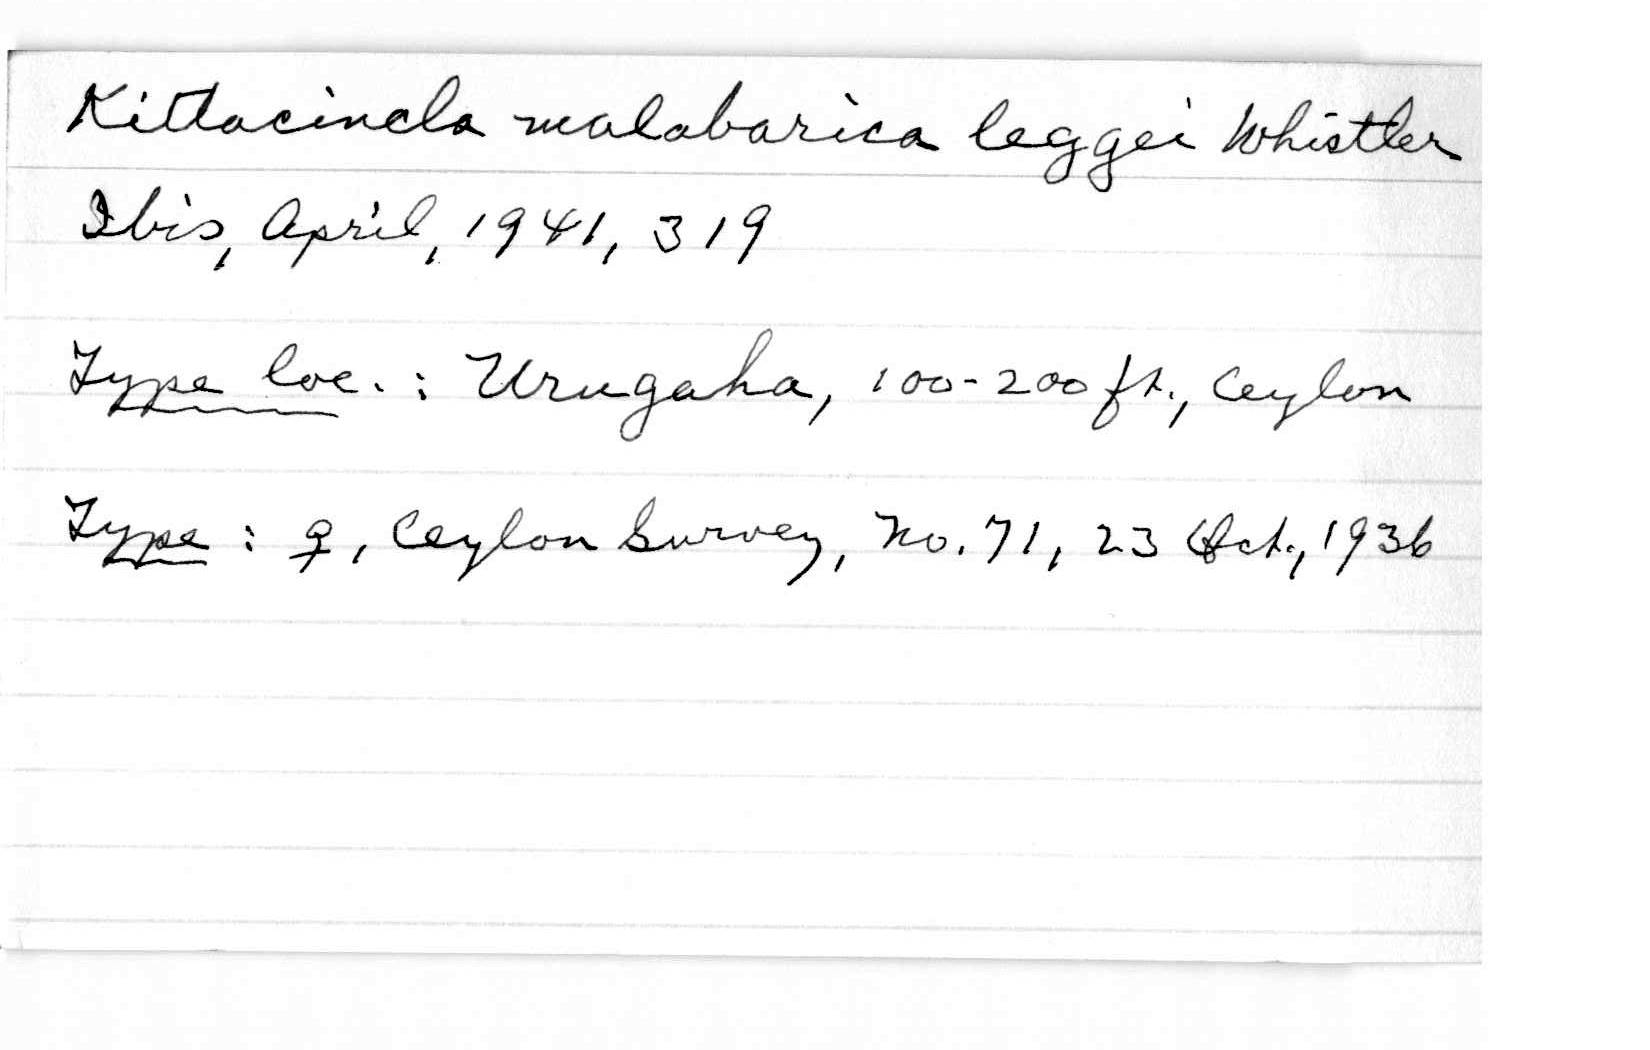 Kittacincla malabarica leggei Whistler
Ibis, April, 1941, 319
Type loc. : Urugaha, 100-200 ft., Ceylon
Type : ♀, Ceylon Survey, No. 71, 23 Oct., 1936